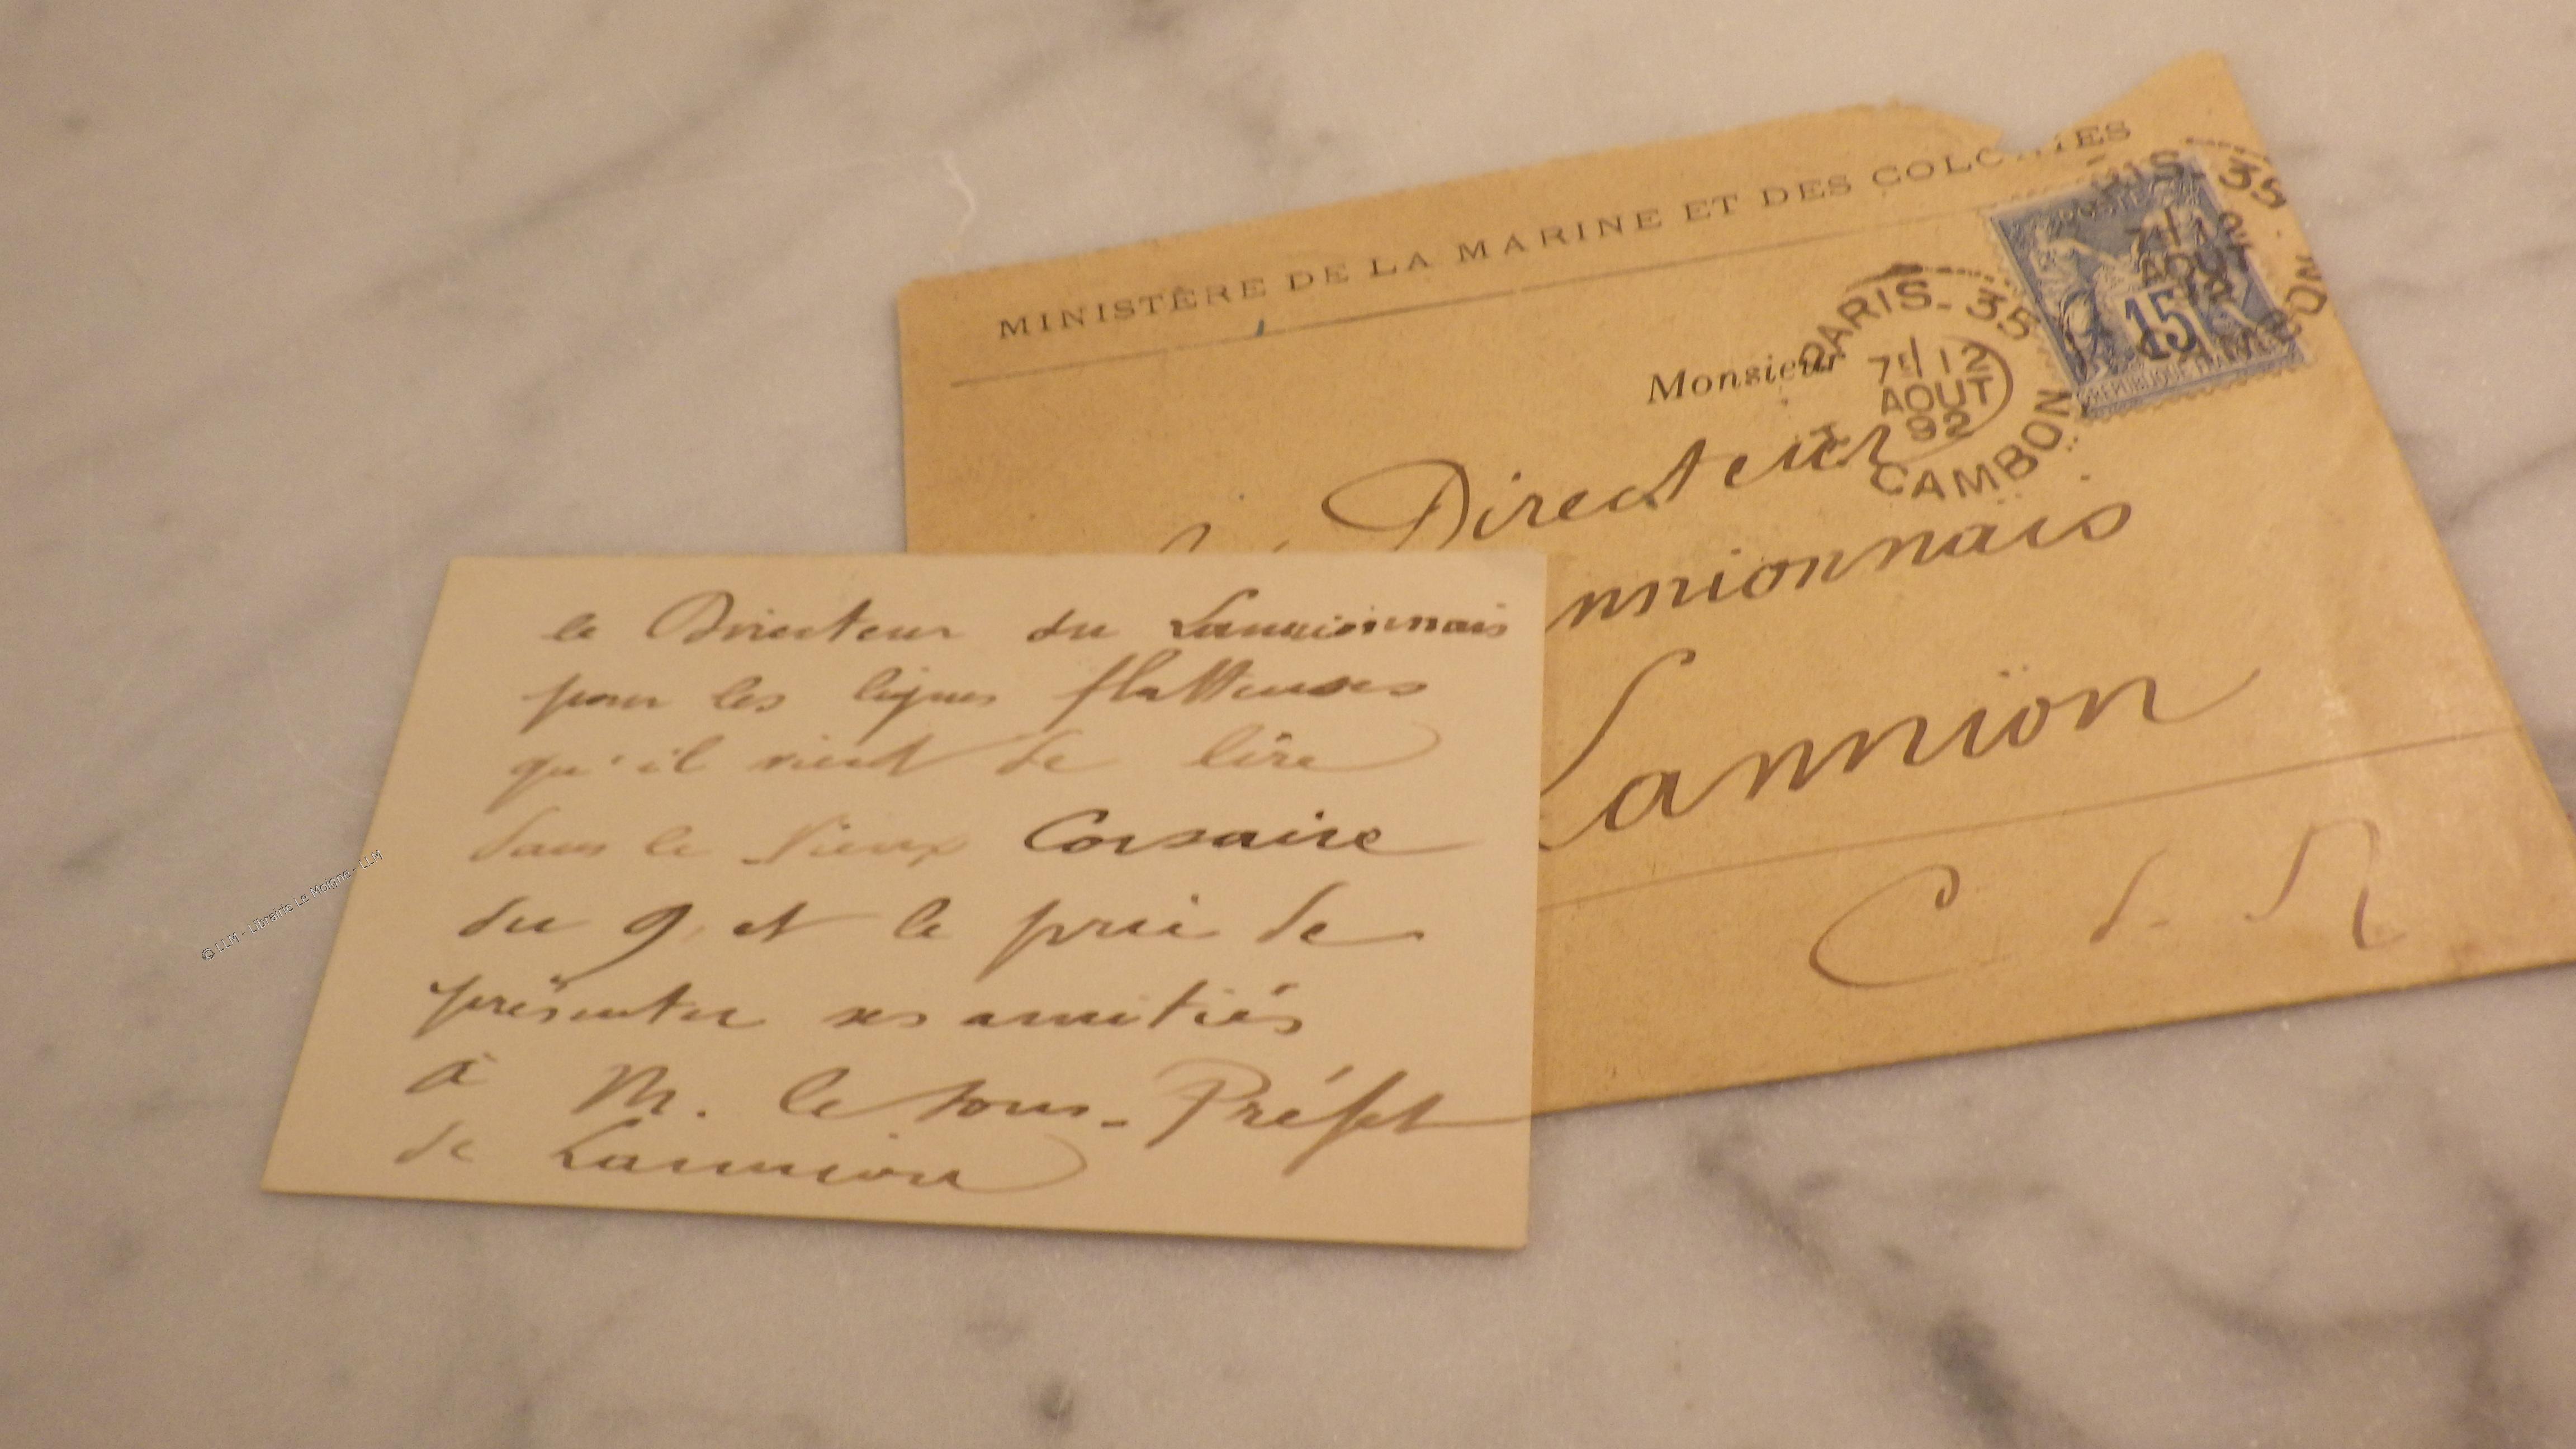 MINISTÈRE DE LA MARINE ET DES COLONIES
PARIS - 35
7E 12
AOUT
92
CAMBON
POSTES
15
RÉPUBLIQUE FRANÇAISE
Monsieur
Directeur
nnionnais
Lannion
C d. N
le Directeur du Lannionnais
pour les lignes flatteuses
qu'il vient de lire
dans le Vieux Corsaire
du 9, et le prie de
présenter ses amitiés
à M. le Sous-Préfet
de Lannion
© LLM - Librairie Le Moigne - LLM